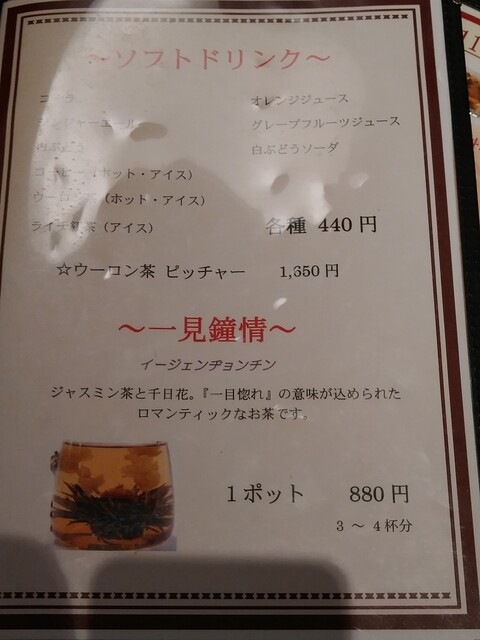 〜ソフトドリンク〜
コーラ
オレンジジュース
ジンジャーエール
グレープフルーツジュース
白ぶどう
白ぶどうソーダ
コーヒー（ホット・アイス）
ウーロン茶（ホット・アイス）
ライチ紅茶（アイス）
各種 440円
☆ウーロン茶 ピッチャー 1,350円
〜一見鐘情〜
イージェンヂョンチン
ジャスミン茶と千日花。『一目惚れ』の意味が込められた
ロマンティックなお茶です。
1ポット 880円
3 〜 4杯分
11